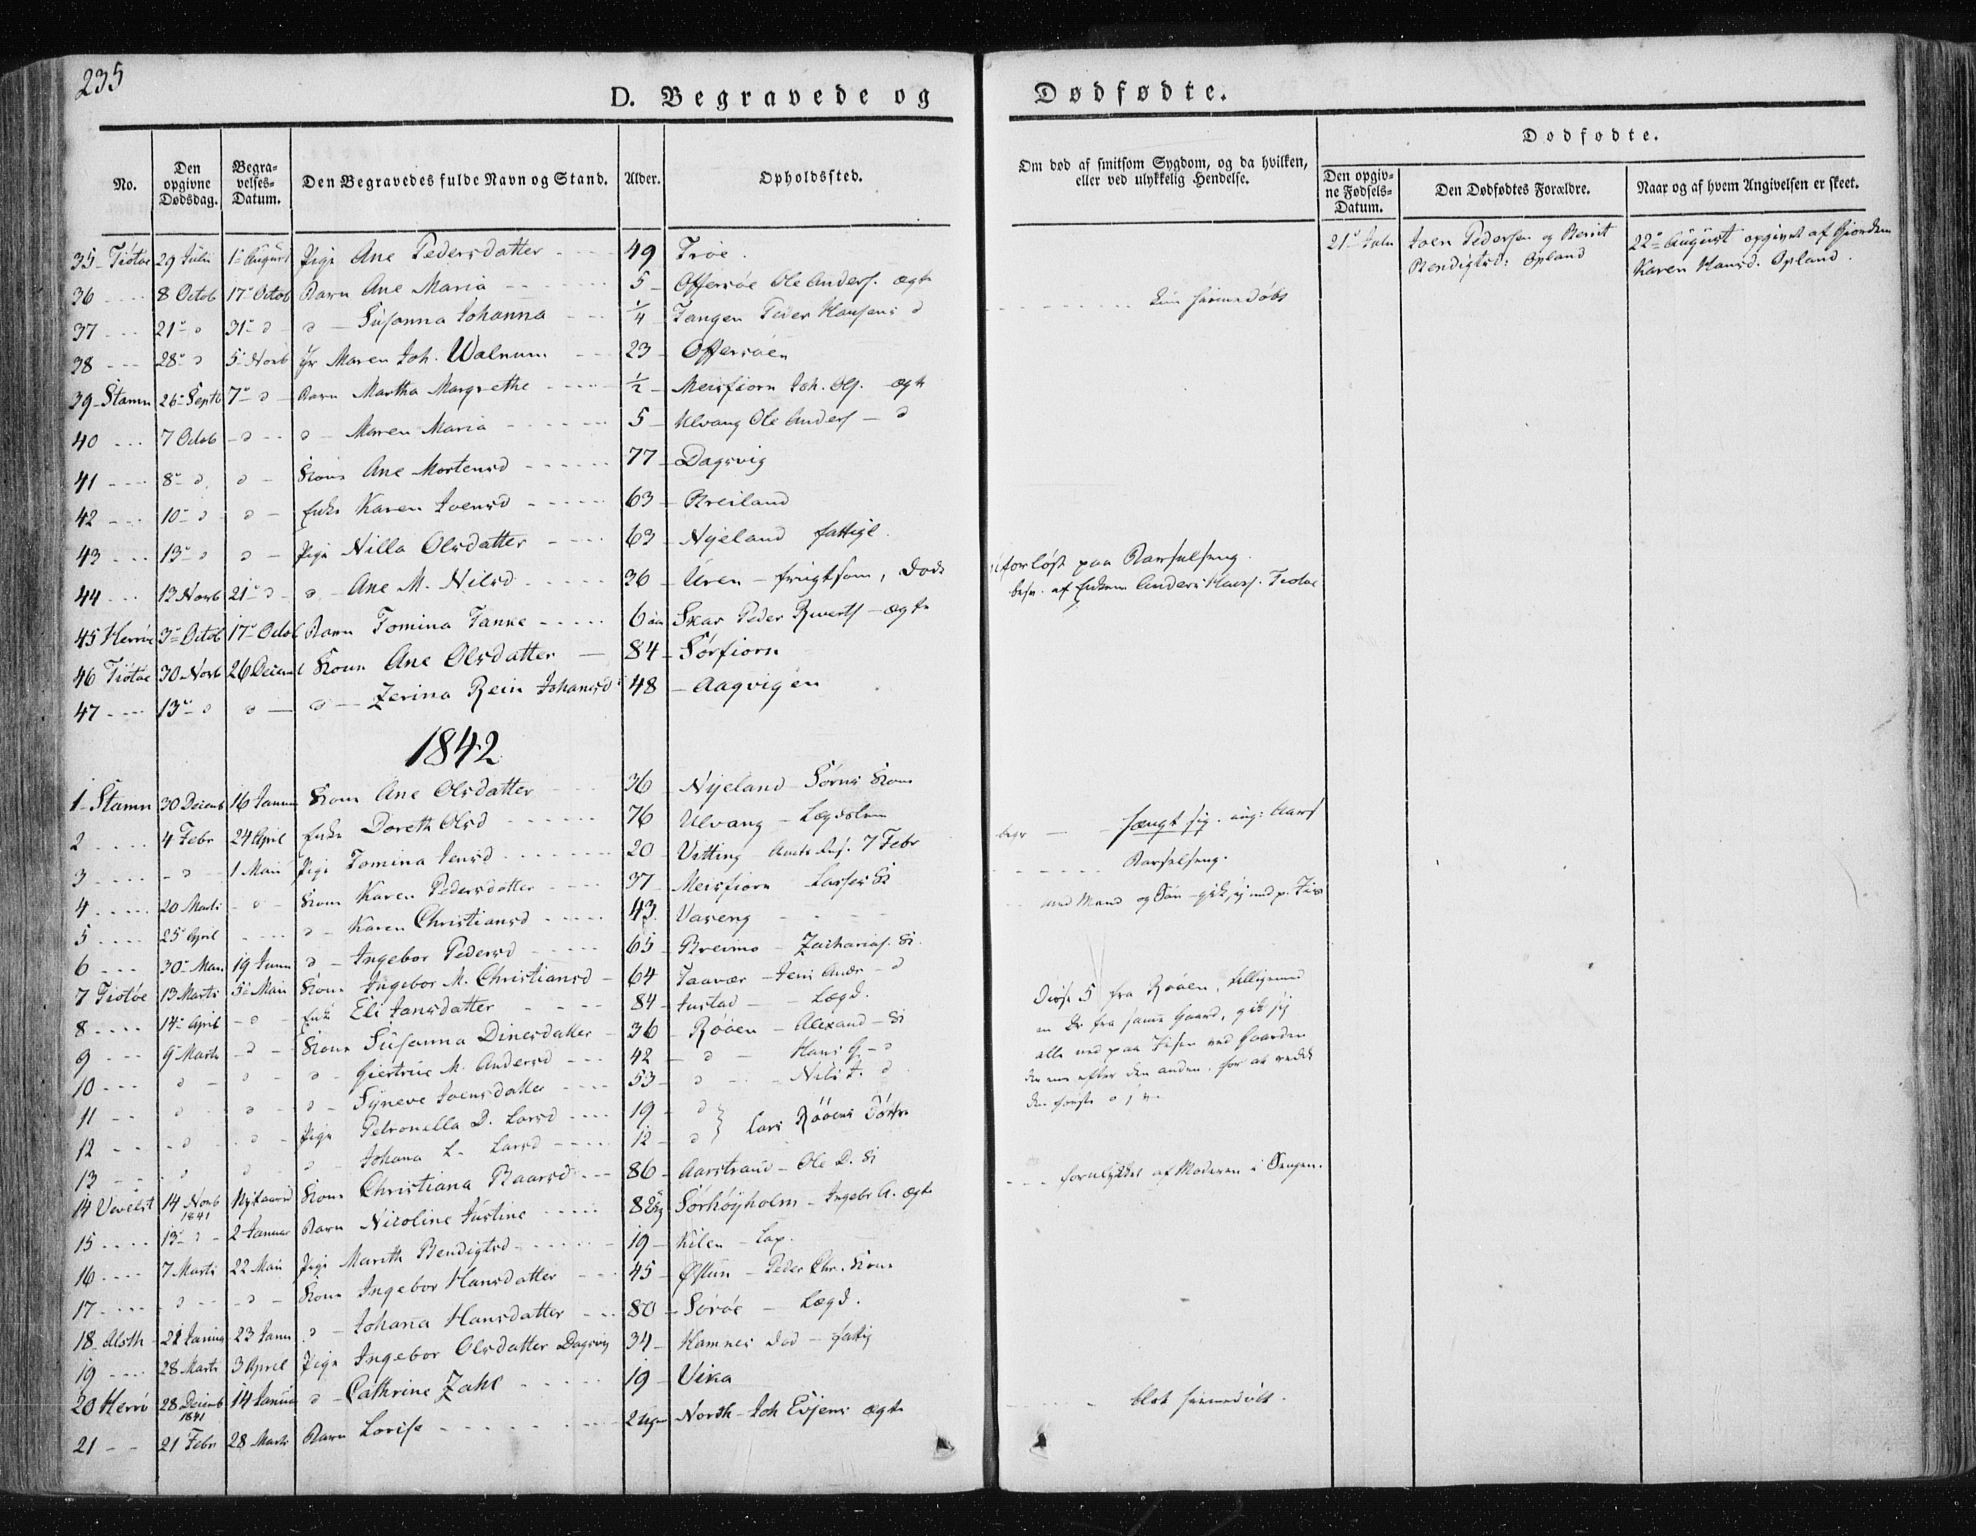 235
D. Begravede og Dødfødte.
No. Den opgivne Dødsdag. Begravelses-Datum. Den Begravedes fulde Navn og Stand. Alder. Opholdssted. Om død af smitsom Sygdom, og da hvilken, eller ved ulykkelig Hendelse. Dødfødte. Den opgivne Fødsels-Datum. Den Dødfødtes Forældre. Naar og af hvem Angivelsen er skeet.
35 Tiøtøe 29 Juli 1 August Pige Ane Pedersdatter 49 Troe. 21 Julu Joen Pedersen og Berit 22 August opgivet af
Bendigtsd: Opland Karen Hansd. Opland.
36 8 Octob 17 Octob Barn Ane Maria 5 Offersøe Ole Anders. ægte
37 21 d 31 d d Susanna Johanna 1/4 Tangen Peder Hansens d hiemedøbt
38 28 d 5 Novb Maren Joh. Walnum 23 Offersøen
39 Stamn 26 Septb 7 d Barn Martha Margrethe 1/2 Meisfiorn Joh. Ols. ægte
40 7 Octob d d Maren Maria 5 Ulvang Ole Anders d
41 8 d d Kone Ane Mortensd 77 Dagsvig
42 10 d d Enke Karen Joensd 63 Breiland
43 13 d d Pige Nilla Olsdatter 63 Nyeland fattigl.
44 12 Novb 21 d d Ane M. Nilsd 36 Uren frugtsom, død uforløst paa Barselseng.
besv. af Enkem Anders Hans. Tiøtøe
45 Herrøe 3 Octob 17 Octob Barn Tomina Tanke 6 Skar Peder ægte
46 Tiøtøe 30 Novb 26 Decemb Kone Ane Olsdatter 84 Sørfiorn
47 13 d d d Zerina Rein Johansd 48 Aagvigen
1842
1 Stamn 30 Decemb 16 Januar Kone Ane Olsdatter 36 Nyeland Sørns Kone
2 4 Febr 24 April Enke Doreth Olsd 76 Ulvang Lægdslem
3 d 1 Mai Pige Tomina Jensd 20 Vitting 7 Febr begr hængt sig.
4 20 Marts d Kone Karen Pedersdatter 37 Meisfiorn Lasses K Barselseng.
5 25 April d Karen Christiansd 43 Vaseng med Mand og Søn gik
6 30 Mai 19 Juni d Ingebor Pedersd 65 Breimo Zacharias. K.
7 Tiøtøe 13 Marts 5 Mai Kone Ingebor M. Christiansd 64 Taavær Jens Andr d
8 14 April d Enke Eli Jansdatter 84 Justad Lægd.
9 9 Marts d Kone Susanna Dinesdatter 36 Røøen Alexand K
10 d d d Giertrue M. Andersd 42 d Hans G d
11 d d d Syneve Joensdatter 53 d Nils J. d
12 d d Pige Petronella D. Larsd 19 d Lars Røøens Døttre
13 d d d Johana L. Larsd 12 d
Disse 5 fra Røøen, tilligemed
en Dr fra samme Gaard, gik sig
alle ned paa Isen ved Gaarden
den ene efter den anden, for at redde
den første
14 Vevelst 14 Novb 1841 Nytaarsd Kone Christiana Baarsd 86 Aarstrand Ole D. K
15 13 d 2 Januar Barn Nicoline Justine 8 Sørhøyholm Ingebr A. ægte forulykket af Moderen i Sengen.
16 7 Marts 22 Mai Pige Marith Bendigtsd 19 Kilen Lap.
17 d d Kone Ingebor Hansdatter 45 Østun Peder Chr. Kone
18 Alsth 22 Januar 23 Janu d Johana Hansdatter 80 Sørøe Lægd.
19 28 Marts 3 April Pige Ingebor Olsdatter Dagsvig 34 Hamnes død fattig
20 Herrø 28 Decemb 1841 14 Januar d Cathrine Zahl 19 Vika
21 21 Febr 28 Marts Barn Lovise 2 Uger North Joh Evjens ægte blot hiemedøbt.